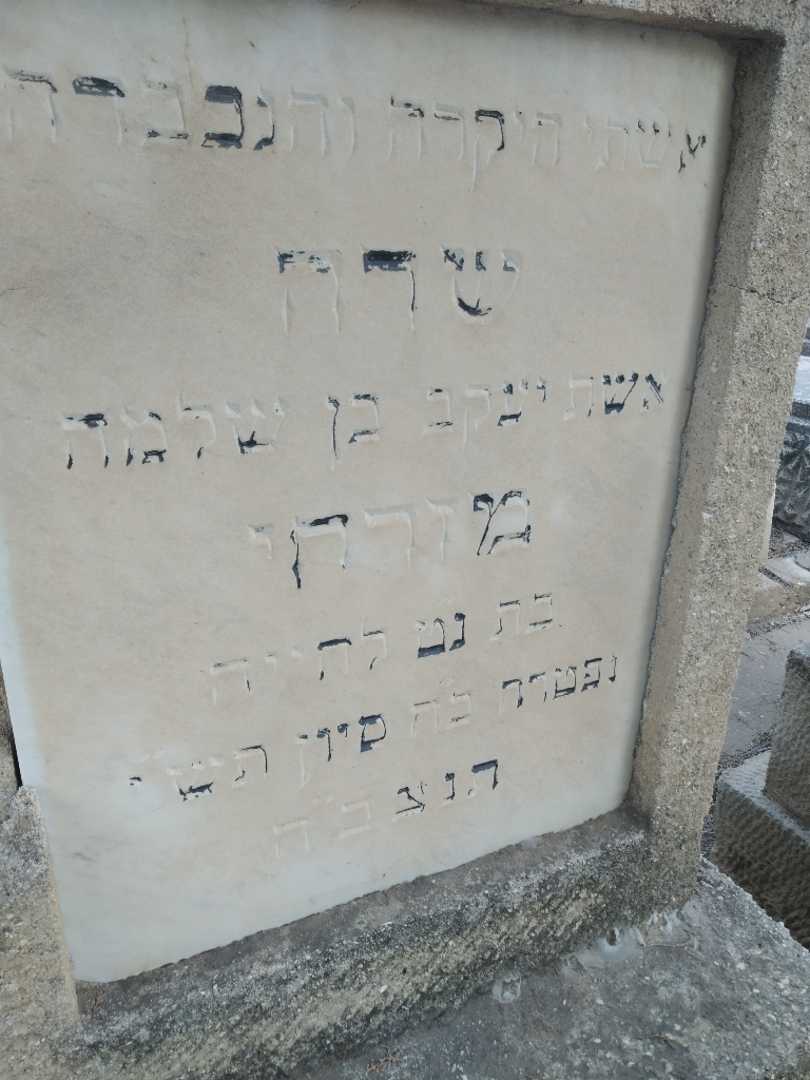 אשתי היקרה והנכבדה
שרה
אשת יעקב בן שלמה
מזרחי
בת נט לחייה
נפטרה כ״ח סיון תש״י
תנצב״ה